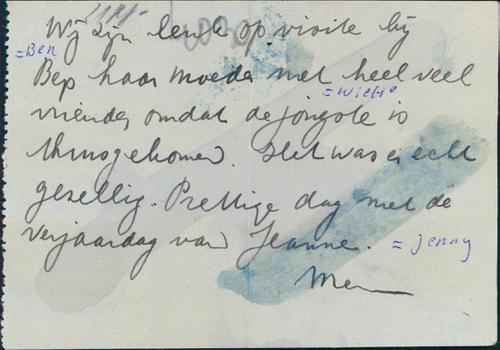 Wij zijn leuk op visite bij
= Ben
Bep haar moeder met heel veel
= Wietie
vrienden omdat de jongste is
thuisgekomen. Het was er echt
gezellig. Prettige dag met de
verjaardag van Jeanne. = Jenny